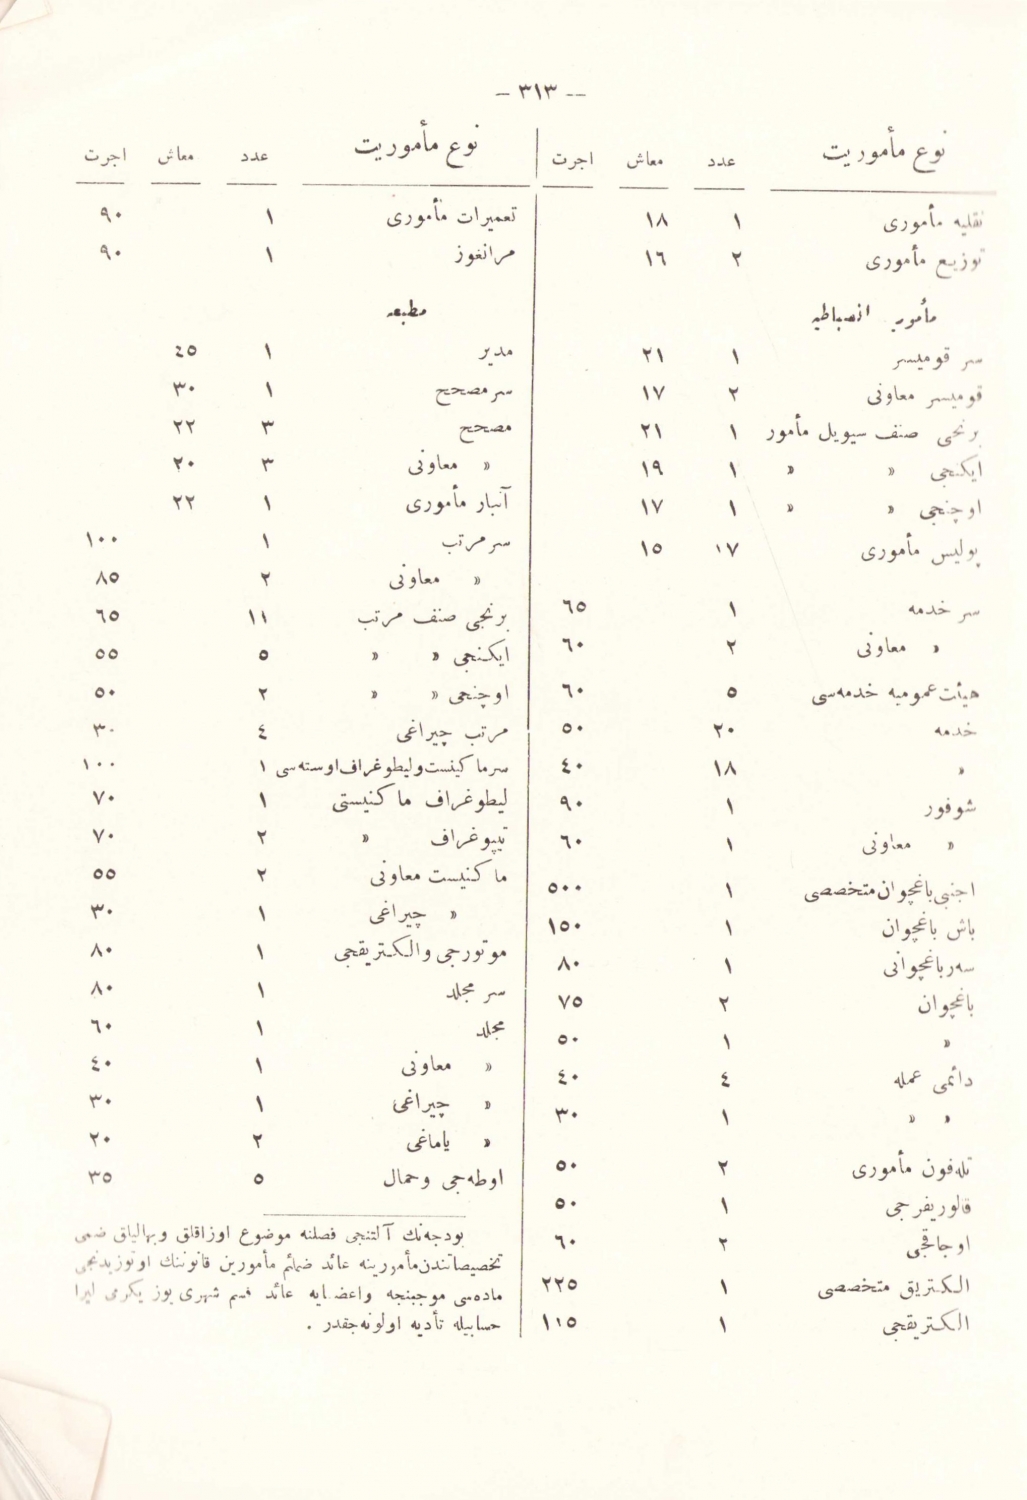 -- ٣١٣ --
نوع مأموریت عدد معاش اجرت
نقلیه مأموری ١ ١٨
توزیع مأموری ٢ ١٦
مأمورین انضباطیه
سر قومیسر ١ ٢١
قومیسر معاونی ٢ ١٧
برنجی صنف سیویل مأمور ١ ٢١
ایکنجی « « ١ ١٩
اوچنجی « « ١ ١٧
پولیس مأموری ١٧ ١٥
سر خدمه ١ ٦٥
« معاونی ٢ ٦٠
هیأت عمومیه خدمه‌سی ٥ ٦٠
خدمه ٢٠ ٥٠
« ١٨ ٤٠
شوفور ١ ٩٠
« معاونی ١ ٦٠
اجنبی باغچوان متخصصی ١ ٥٠٠
باش باغچوان ١ ١٥٠
سه‌رباغچوانی ١ ٨٠
باغچوان ٢ ٧٥
« ١ ٥٠
دائمی عمله ٤ ٤٠
« « ١ ٣٠
تله‌فون مأموری ٢ ٥٠
قالوریفرجی ١ ٥٠
اوجاقجی ٢ ٦٠
الکتریق متخصصی ١ ٢٢٥
الکتریقجی ١ ١١٥
نوع مأموریت عدد معاش اجرت
تعمیرات مأموری ١ ٩٠
مرانغوز ١ ٩٠
مطبعه
مدیر ١ ٤٥
سرمصحح ١ ٣٠
مصحح ٣ ٢٢
« معاونی ٣ ٢٠
آنبار مأموری ١ ٢٢
سرمرتب ١ ١٠٠
« معاونی ٢ ٨٥
برنجی صنف مرتب ١١ ٦٥
ایکنجی « « ٥ ٥٥
اوچنجی « « ٢ ٥٠
مرتب چیراغی ٤ ٣٠
سرماکینست ولیطوغراف اوسته‌سی ١ ١٠٠
لیطوغراف ماکنیستی ١ ٧٠
تیپوغراف « ٢ ٧٠
ماکنیست معاونی ٢ ٥٥
« چیراغی ١ ٣٠
موتورجی والکتریقجی ١ ٨٠
سر مجلد ١ ٨٠
مجلد ١ ٦٠
« معاونی ١ ٤٠
« چیراغی ١ ٣٠
« یاماغی ٢ ٢٠
اوطه‌جی وحمال ٥ ٣٥
بودجه‌نك آلتنجی فصلنه موضوع اوزاقلق وبهالیلق ضمی
تخصیصاتندن مأمورینه عائد ضمائم مأمورین قانوننك اوتوزیدنجی
ماده‌سی موجبنجه واعضایه عائد قسم شهری یوز یکرمی لیرا
حسابیله تأدیه اولونه‌جقدر .